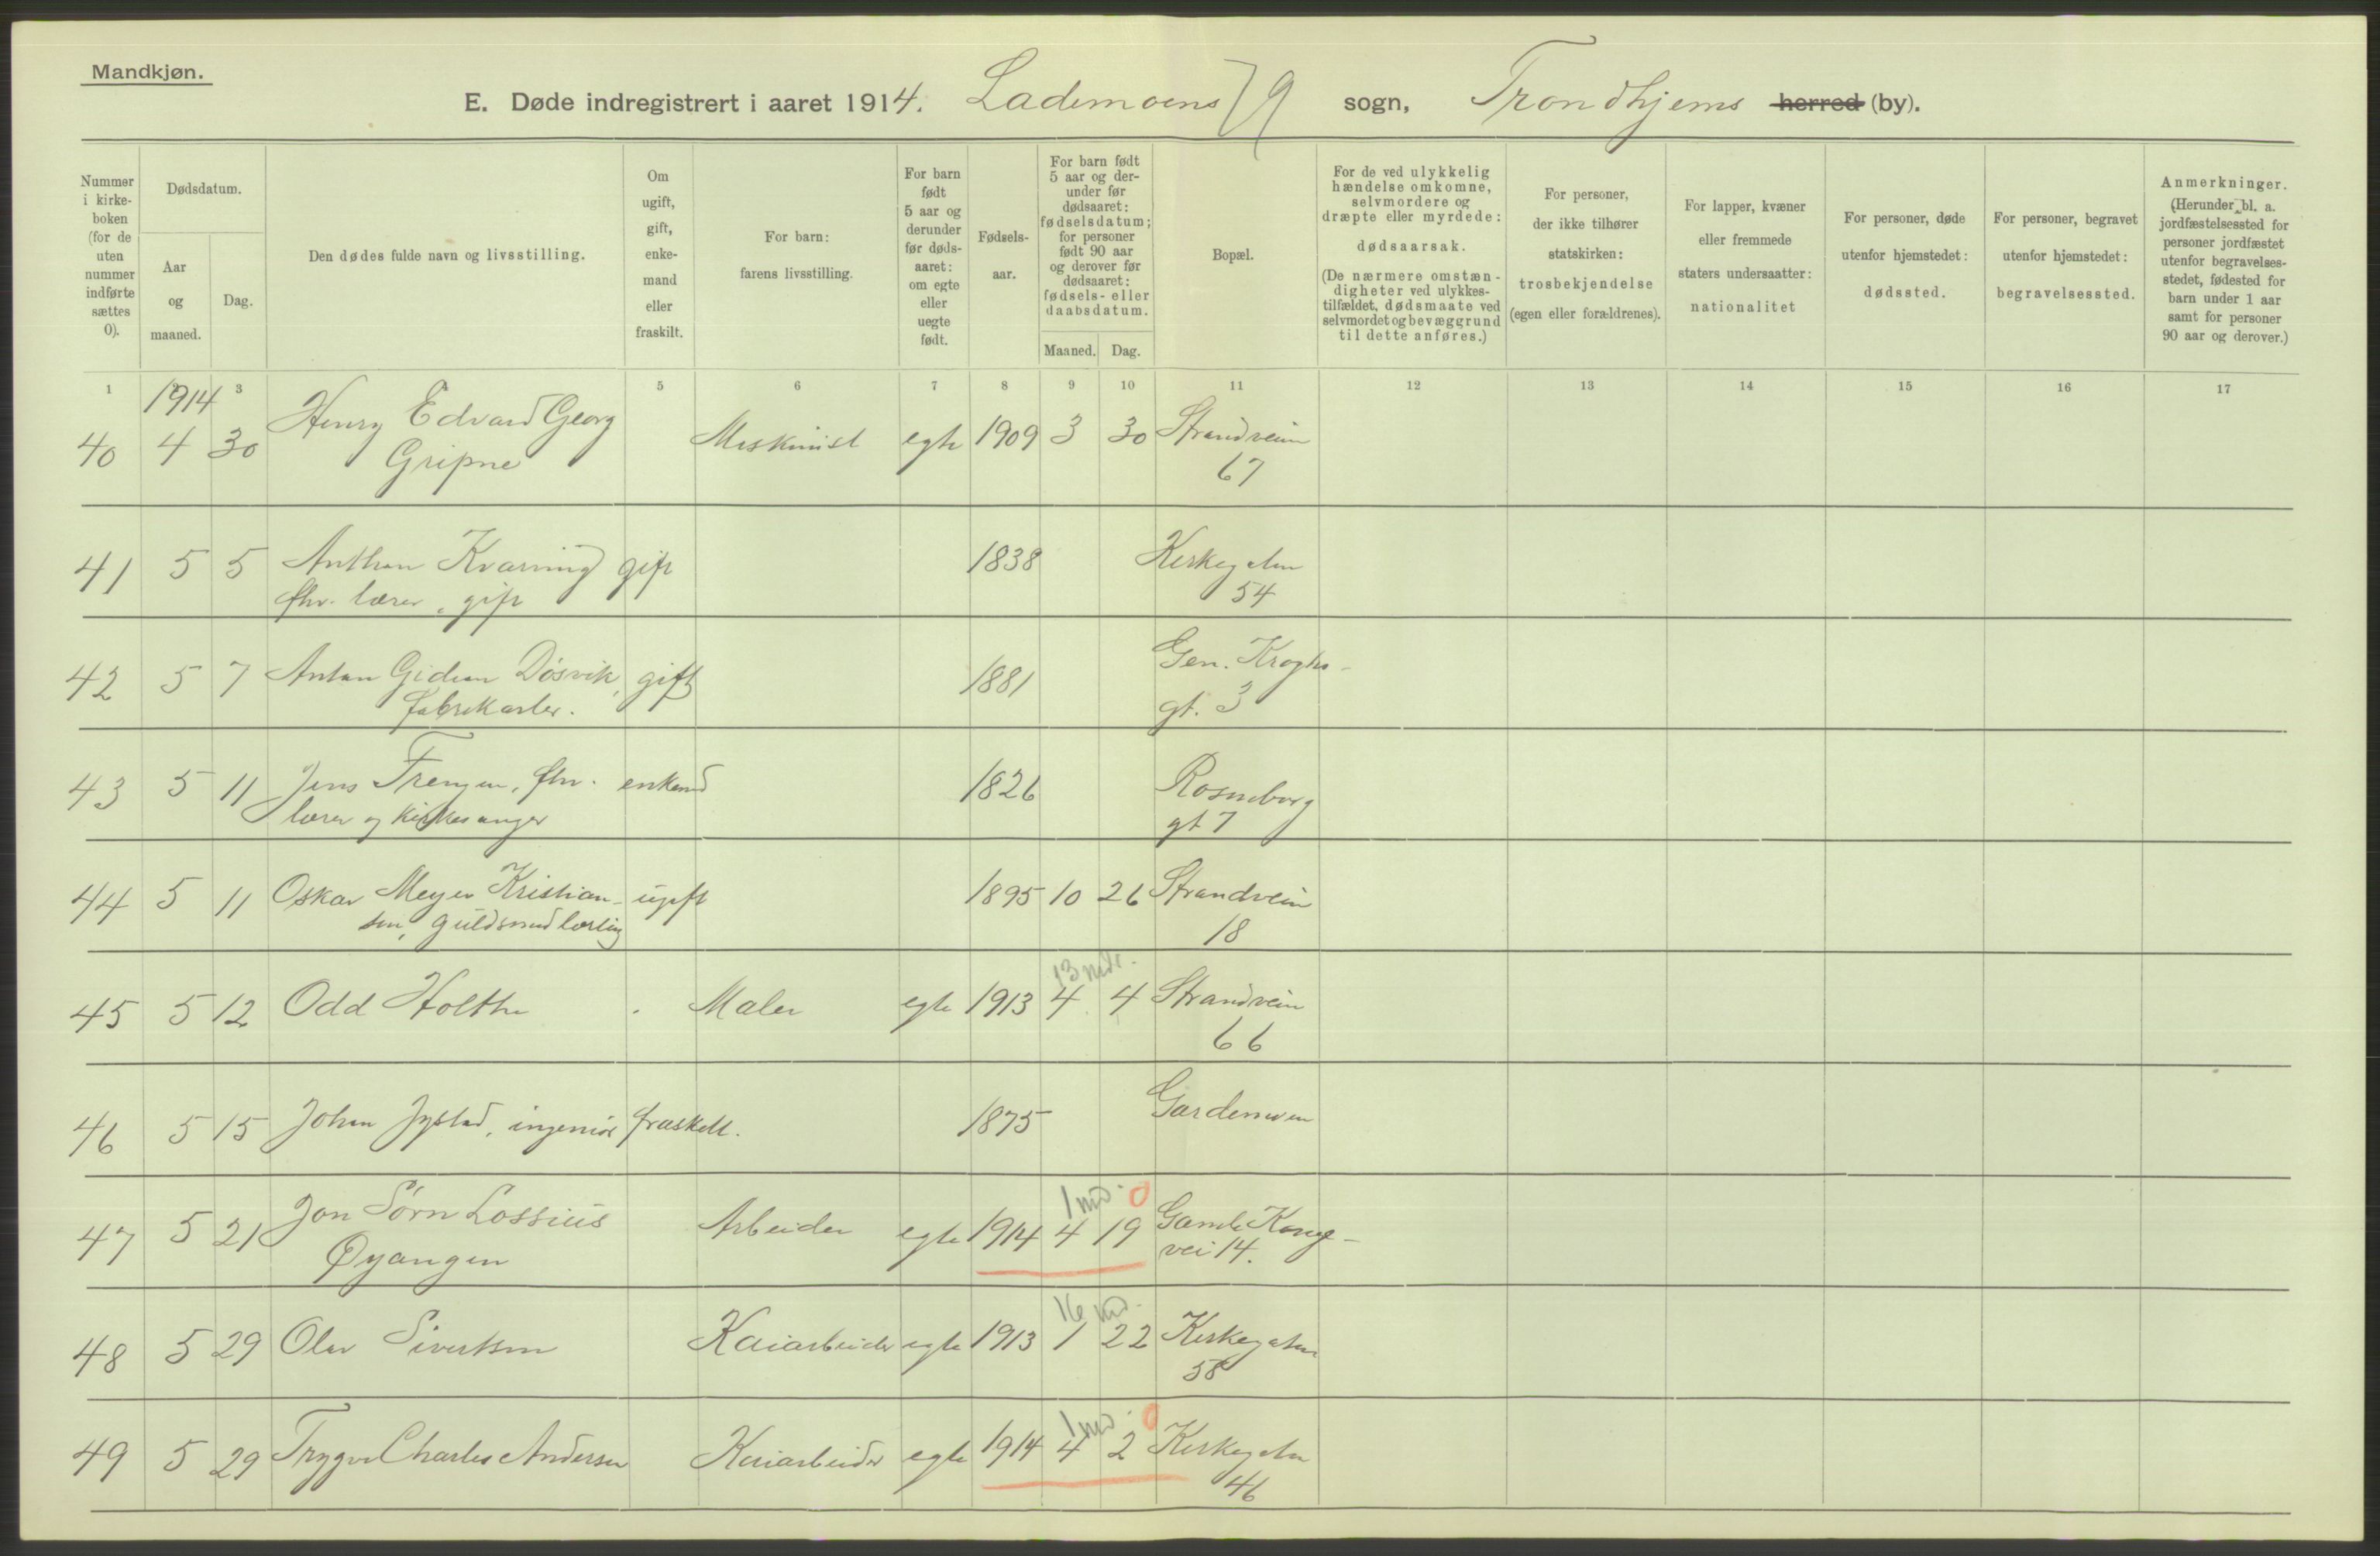 Mandkjøn.
E. Døde indregistrert i aaret 1914. Lademoens 79 sogn, Trondhjems herred (by).
Nummer i kirke-boken (for de uten nummer indførte sættes 0).
Dødsdatum.
Aar og maaned.
Dag.
Den dødes fulde navn og livsstilling.
Om ugift, gift, enke-mand eller fraskilt.
For barn: farens livsstilling.
For barn født 5 aar og derunder før døds-aaret: om egte eller uegte født.
Fødsels-aar.
For barn født 5 aar og der-under før dødsaaret: fødselsdatum; for personer født 90 aar og derover før dødsaaret: fødsels- eller daabsdatum.
Maaned. Dag.
Bopæl.
For de ved ulykkelig hændelse omkomne, selvmordere og dræpte eller myrdede: dødsaarsak. (De nærmere omstæn-digheter ved ulykkes-tilfældet, dødsmaate ved selvmordet og bevæggrund til dette anføres.)
For personer, der ikke tilhører statskirken: trosbekjendelse (egen eller forældrenes).
For lapper, kvæner eller fremmede staters undersaatter: nationalitet
For personer, døde utenfor hjemstedet: dødssted.
For personer, begravet utenfor hjemstedet: begravelsessted.
Anmerkninger. (Herunder bl. a. jordfæstelsessted for personer jordfæstet utenfor begravelses-stedet, fødested for barn under 1 aar samt for personer 90 aar og derover.)
1 2 3 4 5 6 7 8 9 10 11 12 13 14 15 16 17
1914
40 4 30 Henry Edvard Georg Maskinist egte 1909 3 30 Strandveien
Gripne 67
41 5 5 Anthon Kvarning gift 1838 Kirkegaten
fhv. lærer, gift 54
42 5 7 Anton Gideon Døsvik, gift 1881 Gen. Kroghs-
fabrikarb. gt. 3
43 5 11 Jens Trengen, fhv. enkemd 1826 Rosenborg
lærer og kirkesanger gt 7
44 5 11 Oskar Meyer Kristian- ugift 1895 10 26 Strandveien
sen, guldsmedlærling 18
13 mdr.
45 5 12 Odd Holthe Maler egte 1913 4 4 Strandveien
66
46 5 15 Johan Jystad, ingeniør fraskilt. 1875 Gardemoen
1 md. 0
47 5 21 Jon Sørn Lossius Arbeider egte 1914 4 19 Gamle Konge-
Øyangen vei 14.
16 md.
48 5 29 Olav Sivertsen Kaiarbeider egte 1913 1 22 Kirkegaten
58
1 md. 0
49 5 29 Trygve Charles Andersen Kaiarbeider egte 1914 4 2 Kirkegaten
46